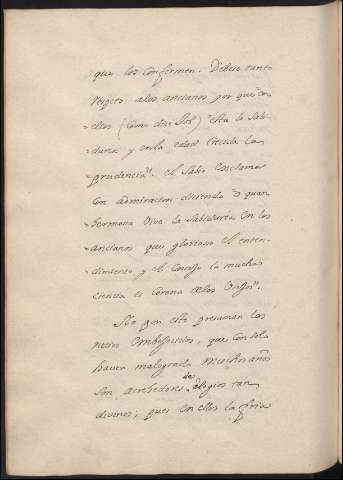 que los confermen. Debese tanto
respeto alos ancianos por que "en
ellos (como dice Job) "esta la Sabi-
duria y en la edad crecida la
prudencia". el Sabio exclama
con admiracion diciendo "o quan
hermosa vive la Sabiduria en los
ancianos que glorioso el enten-
dimiento y el Consejo la mucha
ciencia es Corona delos Viejos".
No por esto presuman los
necios embejecidos, que con solo
haver malogrado muchos años
son acrehedores de elogios tan
divinos; pues en ellos la fria